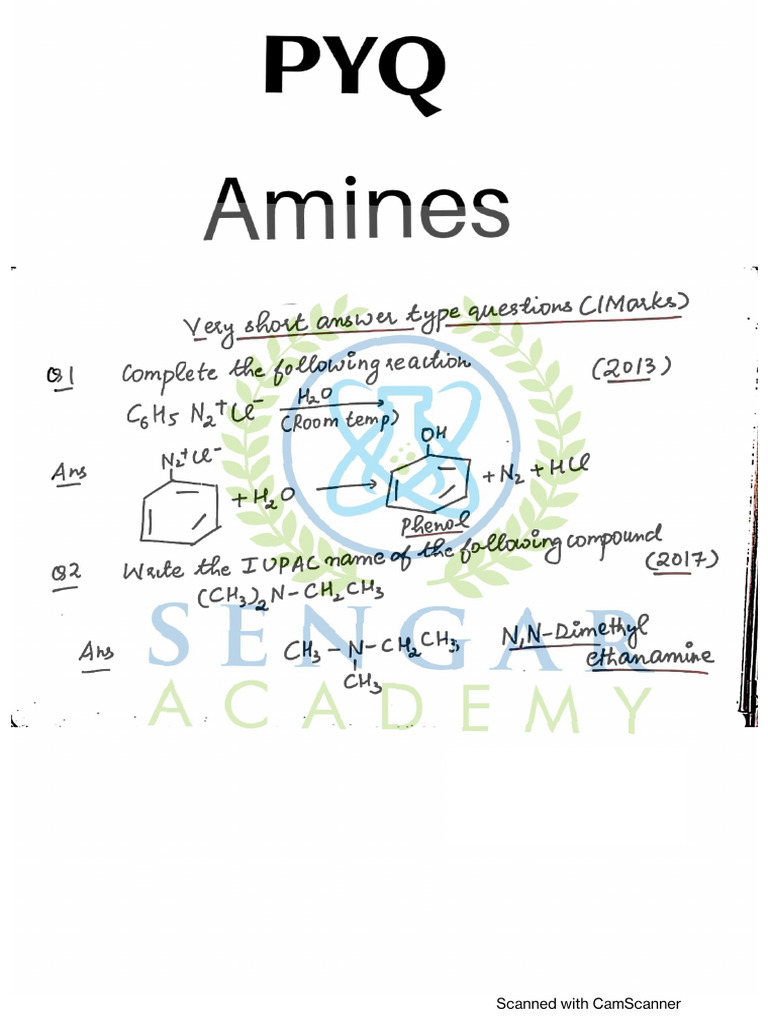 PYQ
Amines
Very short answer type questions (1Marks)
Q1 Complete the following reaction (2013)
C6H5 N2+Cl- H2O
(Room temp)
OH
Ans N2+Cl- + H2O → + N2 + HCl
Phenol
Q2 Write the IUPAC name of the following compound (2017)
(CH3)2N-CH2CH3
Ans CH3-N-CH2CH3, N,N-Dimethyl
CH3 ethanamine
SENGAR
ACADEMY
Scanned with CamScanner